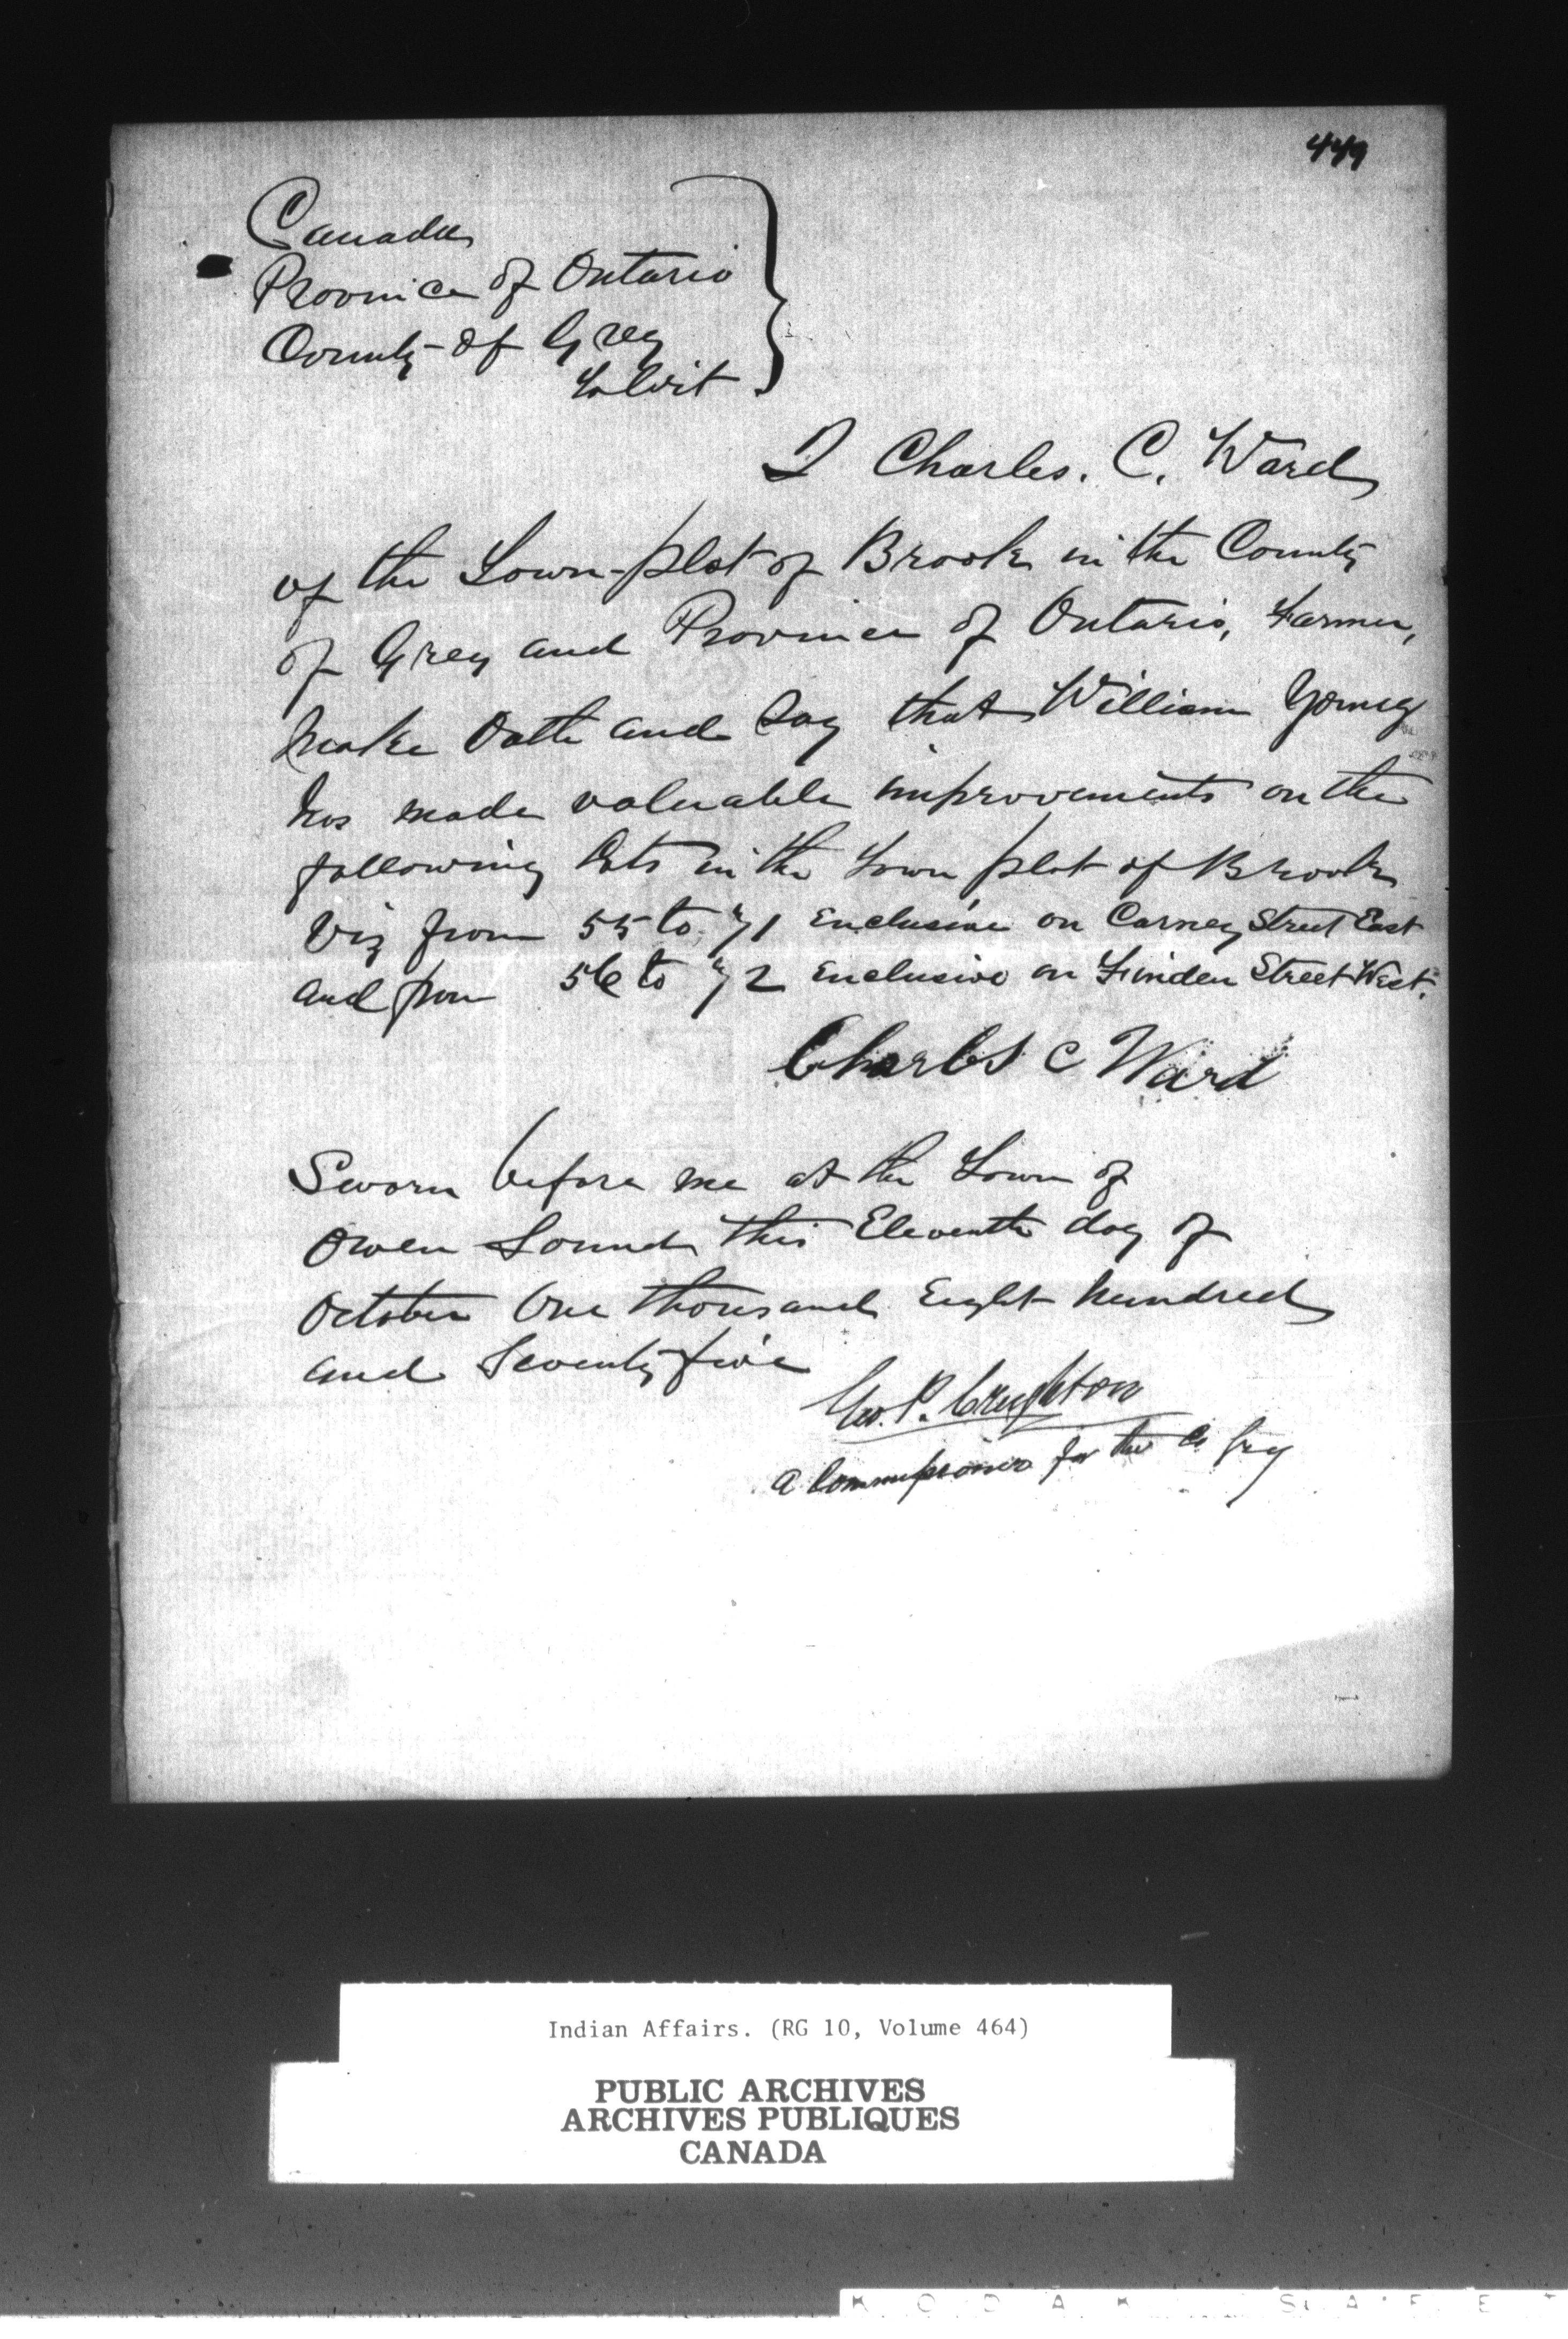 449
Canada
Province of Ontario
County of Grey
To Wit
I Charles. C. Ward
of the Town-plot of Brooke in the County
of Grey and Province of Ontario, Farmer,
make Oath and Say that William Young
has made valuable improvements on the
following lots in the Town plot of Brooke
Viz from 55 to 71 Enclusive on Carney Street East
and from 56 to 72 Enclusive on Linden Street West.
Charles C Ward
Sworn before me at the Town of
Owen Sound this Eleventh day of
October One thousand Eight hundred
and Seventy five
Geo. P. Creighton
a Commissioner for the Co Grey
Indian Affairs. (RG 10, Volume 464)
PUBLIC ARCHIVES
ARCHIVES PUBLIQUES
CANADA
KODAK SAFET